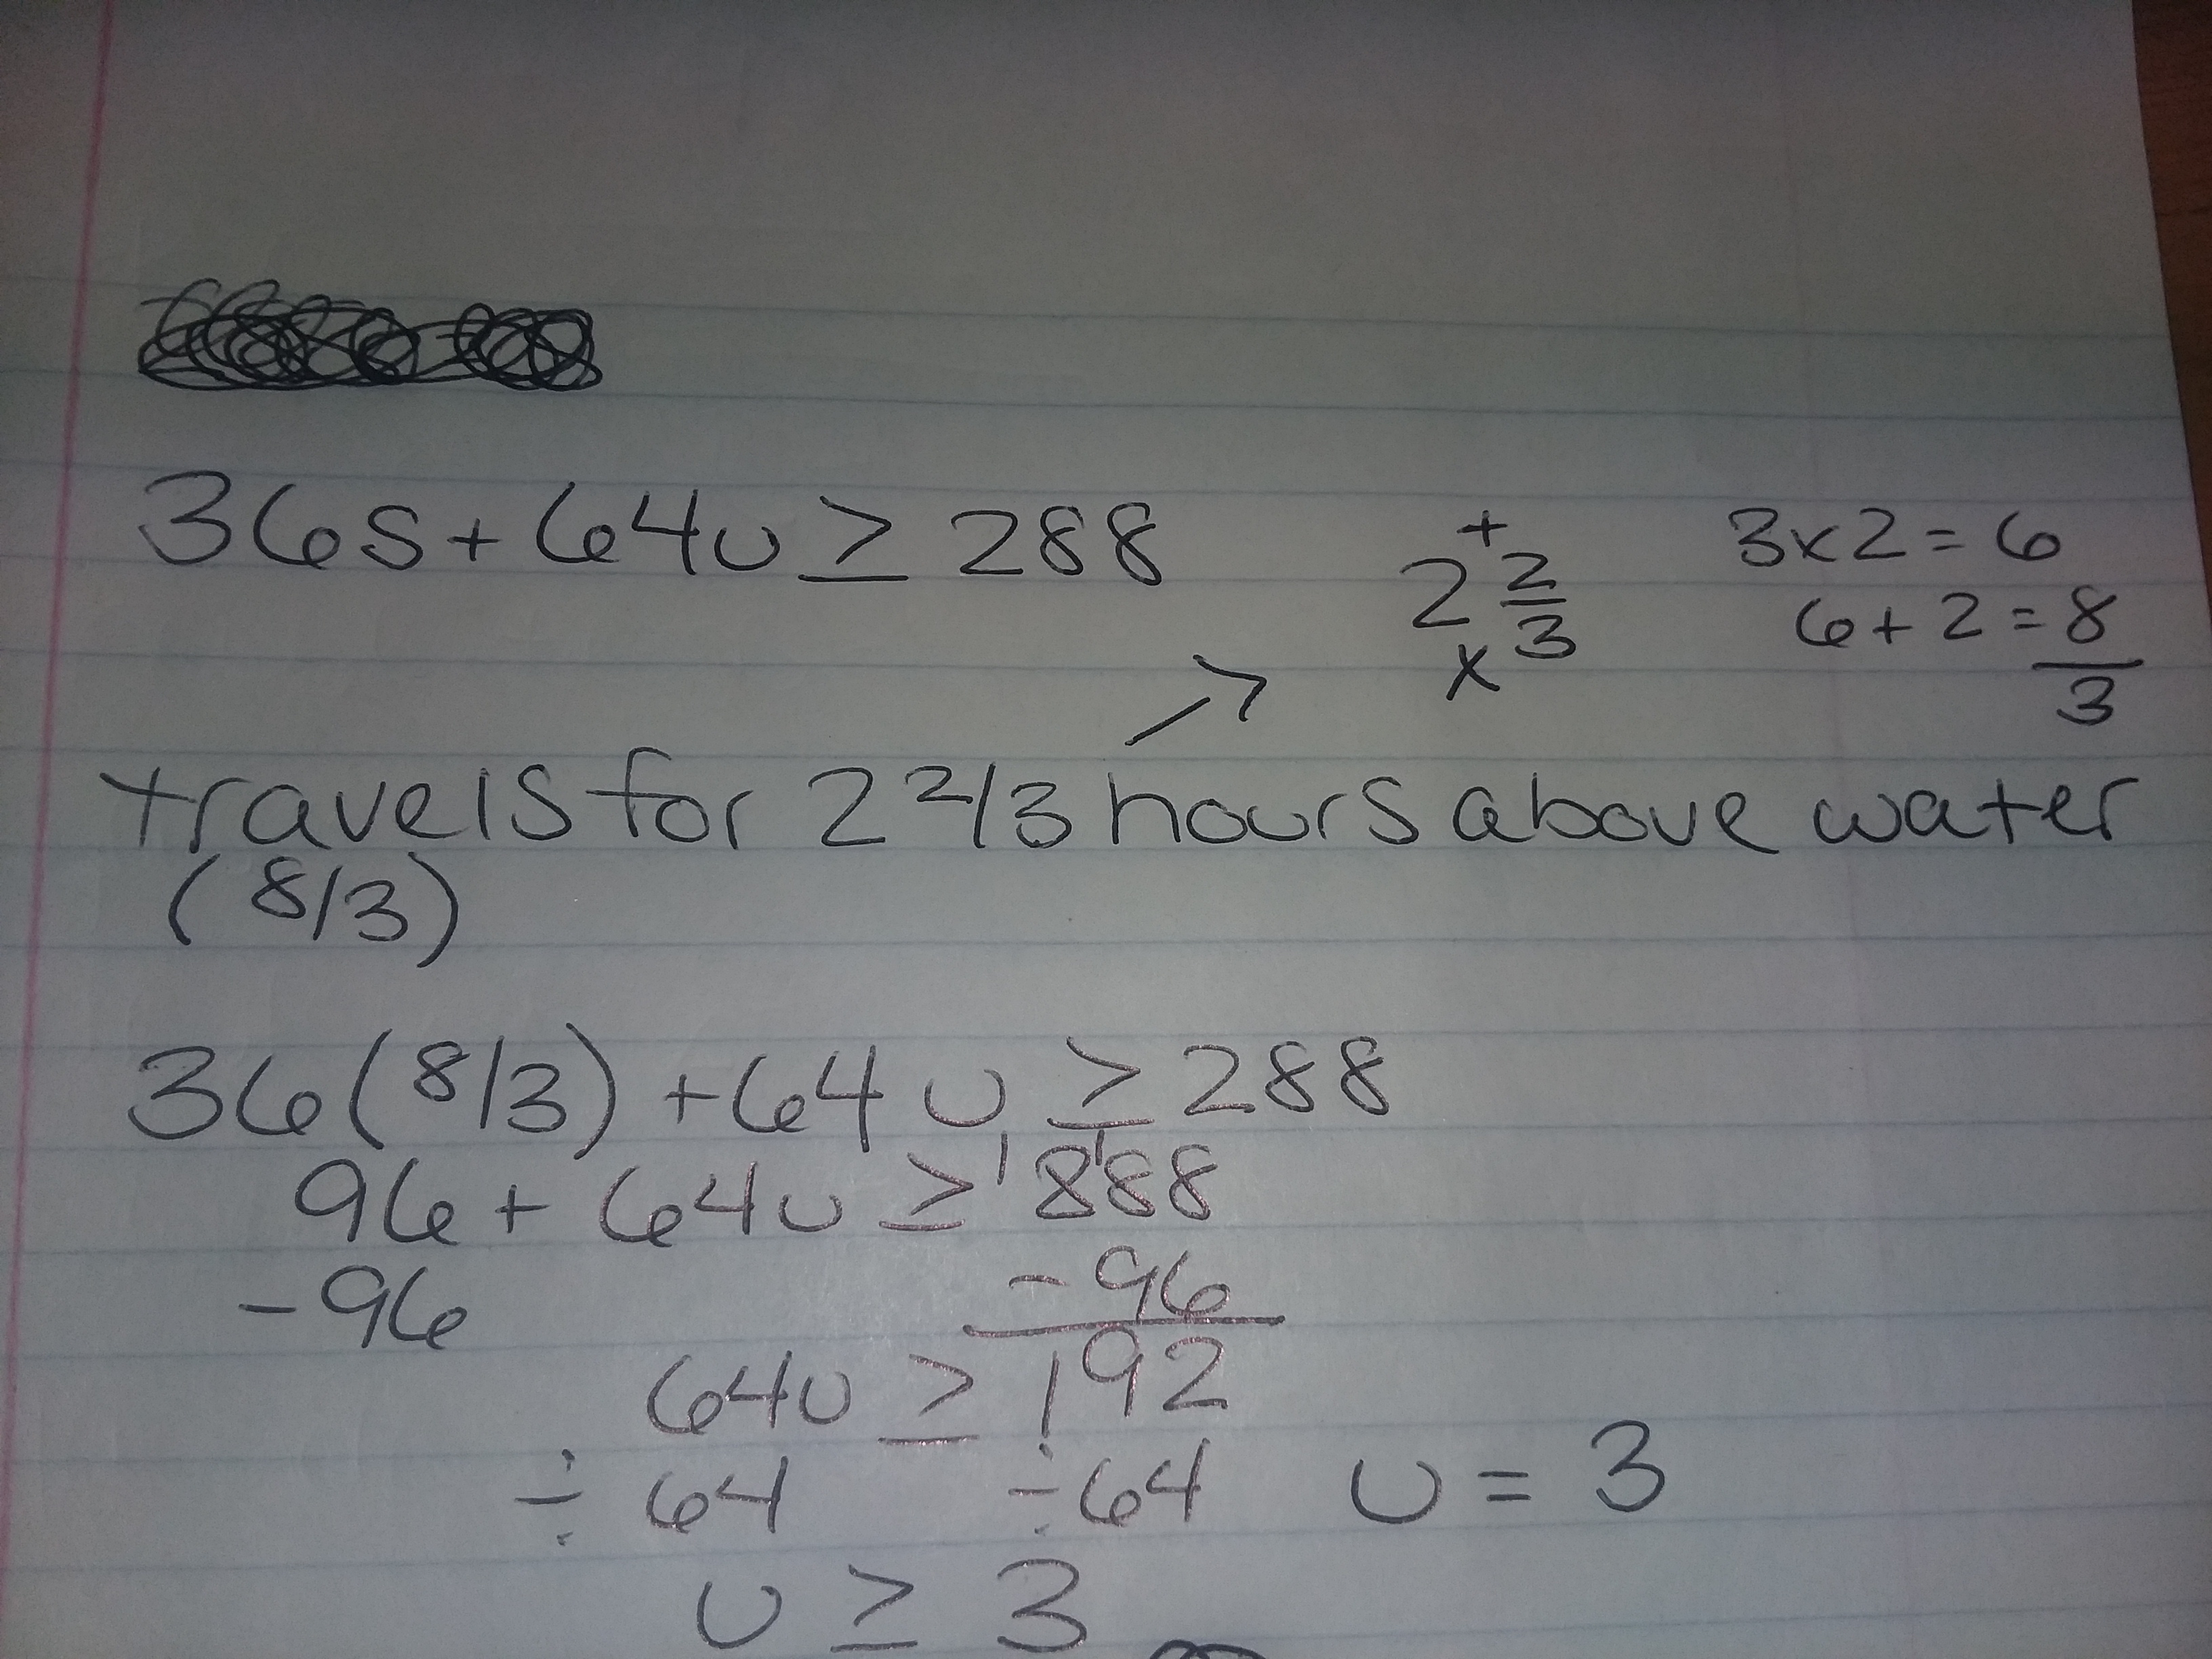 36s + 64u ≥ 288
2 2/3
+
x
3x2=6
6+2=8/3
travels for 2 2/3 hours above water
(8/3)
36(8/3) + 64u ≥ 288
96 + 64u ≥ 288
-96 -96
64u ≥ 192
÷ 64 ÷64
u = 3
u ≥ 3